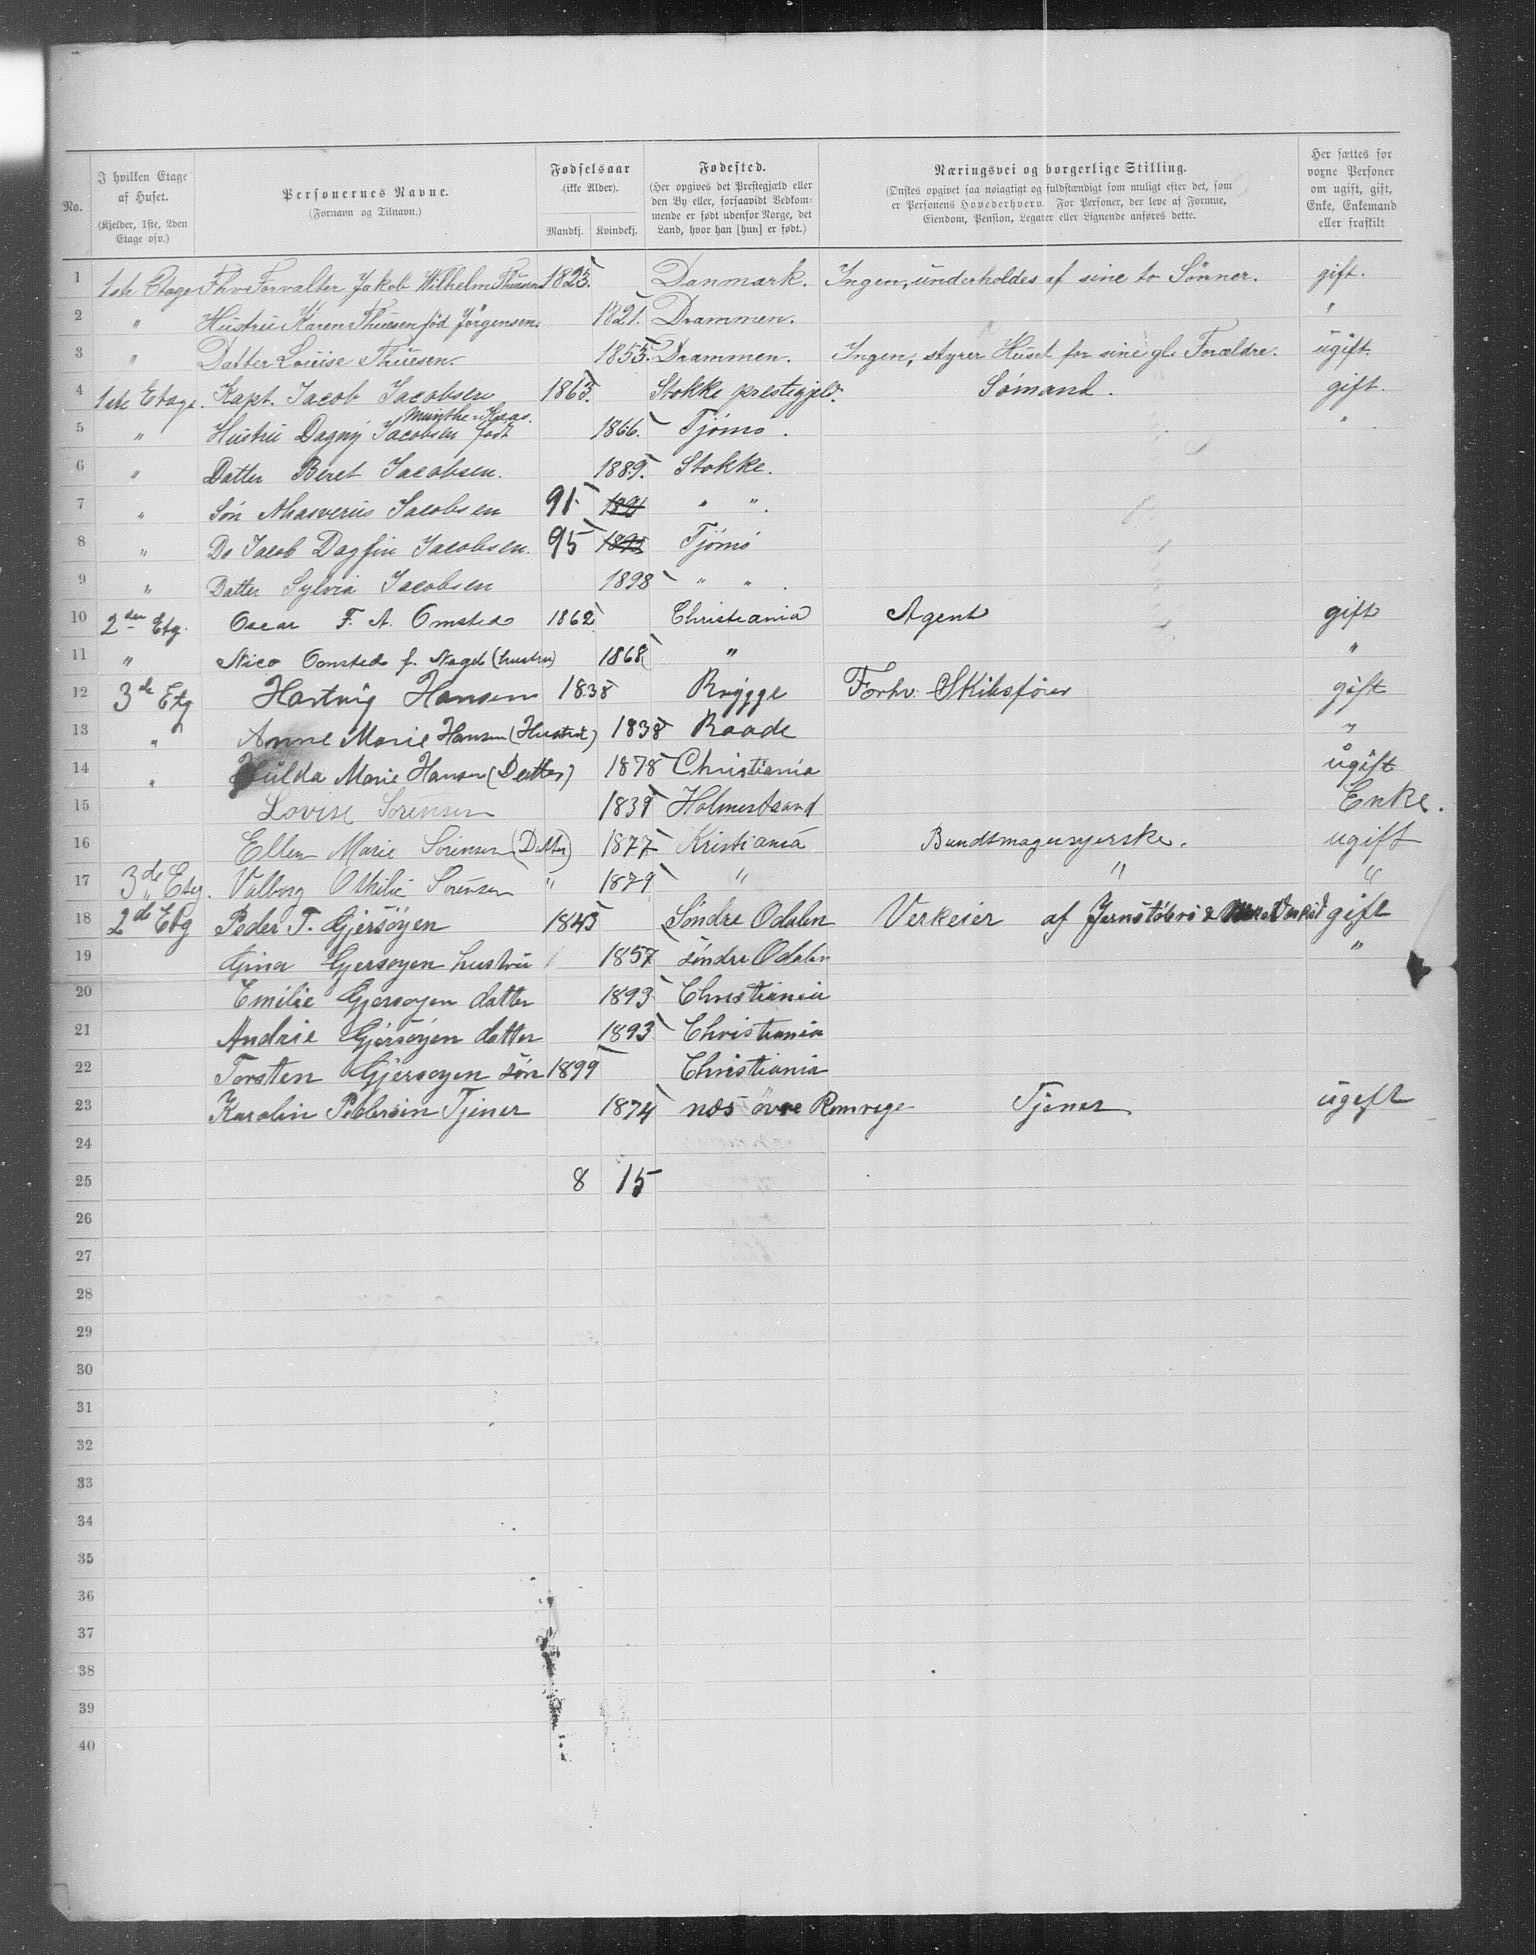 No. | I hvilken Etage af Huset. (Kjelder, 1ste, 2den Etage osv.) | Personernes Navne. (Fornavn og Tilnavn.) | Fødselsaar (ikke Alder). Mandkj. Kvindekj. | Fødested. (Her opgives det Prestegjæld eller den By eller, forsaavidt Vedkommende er født udenfor Norge, det Land, hvor han [hun] er født.) | Næringsvei og borgerlige Stilling. (Ønskes opgivet saa nøiagtigt og fuldstændigt som muligt efter det, som er Personens Hovederhverv. For Personer, der leve af Formue, Eiendom, Pension, Legater eller Lignende anføres dette. | Her sættes for voxne Personer om ugift, gift, Enke, Enkemand eller fraskilt
1 1ste Etage Fhv Forvalter Jakob Wilhelm Thuesen 1823. Danmark. Ingen, underholdes af sine to Sønner. gift.
2 " Hustru Karen Thuesen fød Jørgensen. 1821. Drammen. "
3 " Datter Louise Thuesen. 1855. Drammen. Ingen, styrer Huset for sine gl. Forældre. ugift.
4 1ste Etage. Kapt. Jacob Jacobsen 1863. Stokke prestegjeld. Sømand. gift.
5 " Hustru Dagny Jacobsen født Munthe-Kaas. 1866. Tjømø. "
6 " Datter Beret Jacobsen. 1889. Stokke.
7 " Søn Ahasverus Jacobsen 91 1891 " ".
8 " Do Jacob Dagfin Jacobsen. 95 1895 Tjømø
9 " Datter Sylvia Jacobsen 1898 " ".
10 2den Etg. Oscar F. A. Omsted 1862 Christiania Agent gift
11 " Nico Omsted f. Nagel (hustru) 1868 " "
12 3de Etg Hartvig Hansen 1838 Rygge Forhv. Skibsfører gift
13 " Anne Marie Hansen (Hustru) 1838 Raade "
14 " Hulda Marie Hansen (Datter) 1878 Christiania ugift
15 Lovise Sørensen 1839 Holmestrand Enke.
16 Ellen Marie Sørensen (Datter) 1877 Kristiania Bundtmagersyerske. ugift
17 3de Etg. Valborg Othilie Sørensen " 1879 " " "
18 2de Etg Peder T. Gjersøyen 1843 Søndre Odalen Verkeier af Jernstøberi & Mek Verksted gift
19 Gina Gjersøyen hustru 1857 søndre Odalen "
20 Emilie Gjersøyen datter 1893 Christiania
21 Andrie Gjersøyen datter 1893 Christiania
22 Torsten Gjersøyen søn 1899 Christiania
23 Karolin Pedersen Tjener 1874 næs øvre Romrege Tjener ugift
24
25 8 15
26
27
28
29
30
31
32
33
34
35
36
37
38
39
40